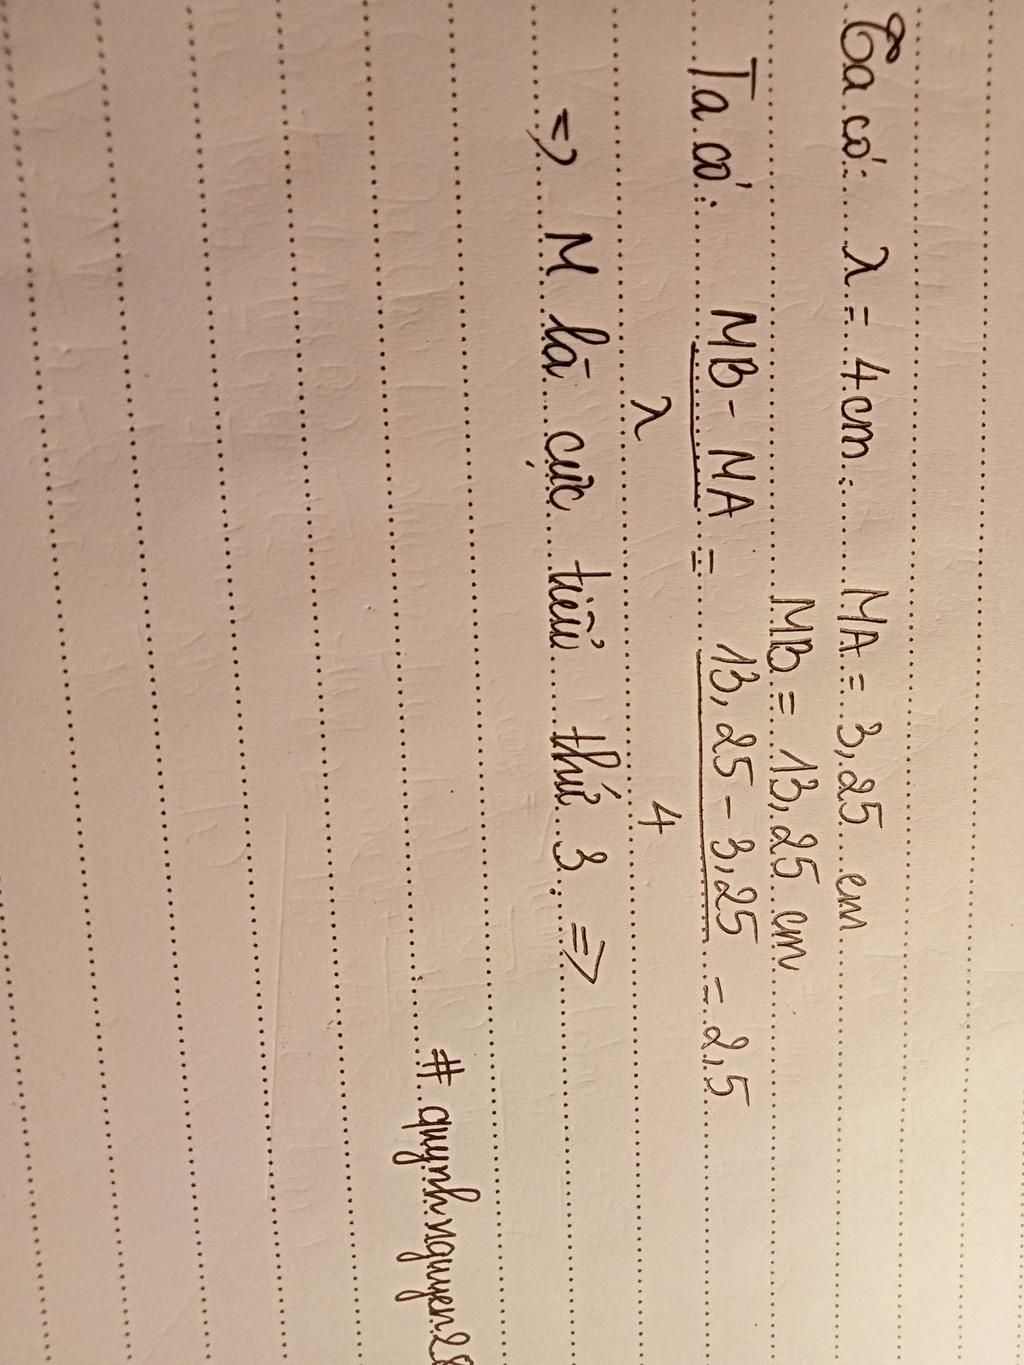 Ta có: λ = 4cm. MA = 3,25 cm
MB = 13,25 cm
Ta có: MB - MA = 13,25 - 3,25 = 2,5
λ 4
=> M là cực tiểu thứ 3. =>
# quynhnguyen28